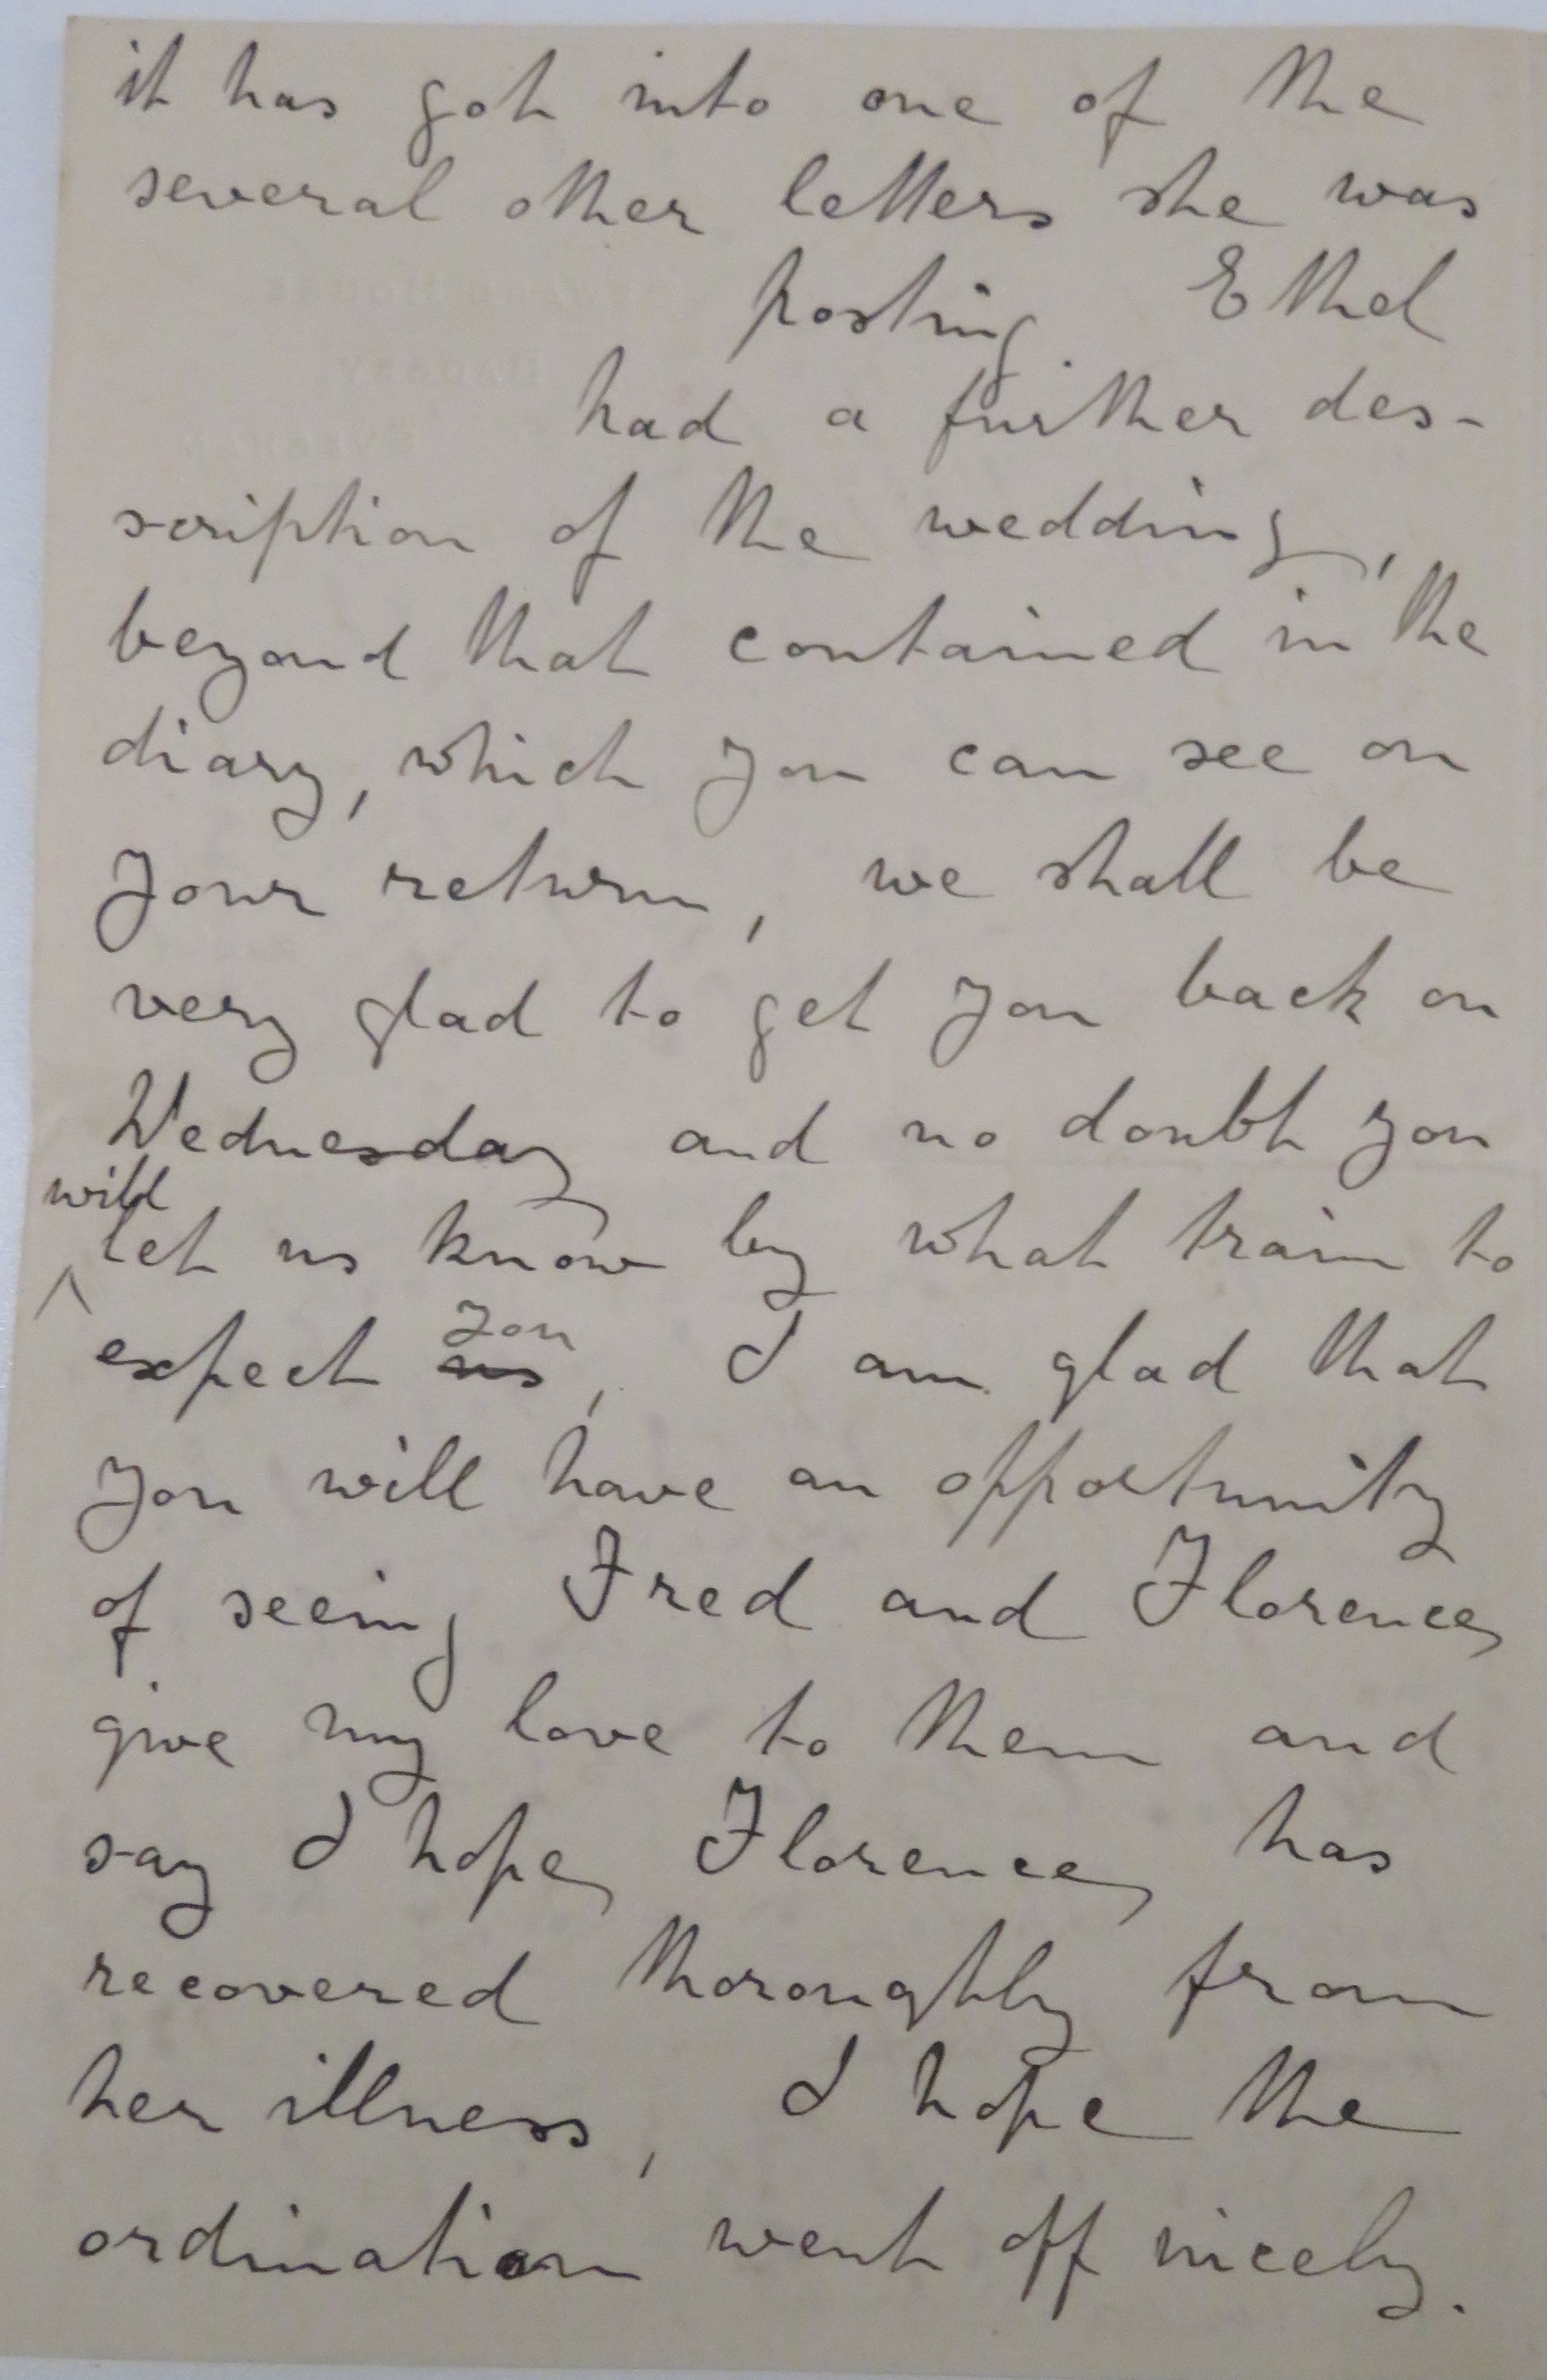 it has got into one of the
several other letters she was
posting. Ethel
had a further des-
scription of the wedding,
beyond that contained in the
diary, which you can see on
your return, we shall be
very glad to get you back on
Wednesday and no doubt you
will
let us know by what train to
you
expect us, I am glad that
you will have an opportunity
of seeing Fred and Florence,
give my love to them and
say I hope, Florence, has
recovered thoroughly from
her illness, I hope the
ordination went off nicely.